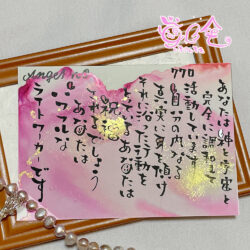 Angel n
770
あなたは神・宇宙と
完全に調和して
活動しています
自分の内なる
真実に耳を傾け
それに沿った行動を
しているあなたは
祝福
されるでしょう
あなたは
パワフルな
ライトワーカーです